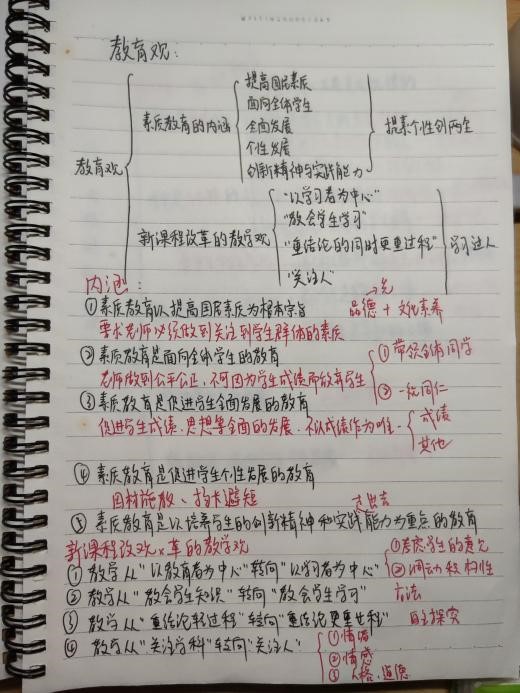 教育观：
教育观
素质教育的内涵
提高国民素质
面向全体学生
全面发展
个性发展
创新精神与实践能力
提素个性创两全
新课程改革的教学观
"以学习者为中心"
"教会学生学习"
"重结论的同时更重过程"
"关注人"
学习过人
内涵：
→先
①素质教育以提高国民素质为根本宗旨 品德+文化素养
要求老师必须做到关注到学生群体的素质
②素质教育是面向全体学生的教育 ①带领全体同学
老师做到公平公正，不可因为学生成绩而放弃学生 ②一视同仁
③素质教育是促进学生全面发展的教育
促进学生成绩、思想等全面的发展，不以成绩作为唯一 成绩
其他
④素质教育是促进学生个性发展的教育
因材施教、扬长避短
走出去
⑤素质教育是以培养学生的创新精神和实践能力为重点的教育
新课程改观×革的教学观
①教学从"以教育者为中心"转向"以学习者为中心" ①考虑学生的意见
②调动积极性
②教学从"教会学生知识"转向"教会学生学习" 方法
③教学从"重结论轻过程"转向"重结论更重过程" 自主探究
④教学从"关注学科"转向"关注人" ①情绪
②情感
③人格、道德